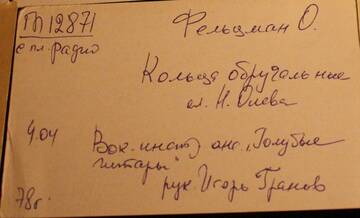 ГП 12871
с пл. радио
Фельцман О.
Кольца обручальные
сл. И. Олева
4.04
Вок.-инстр. анс. „Голубые
гитары"
рук. Игорь Гранов
78 г.